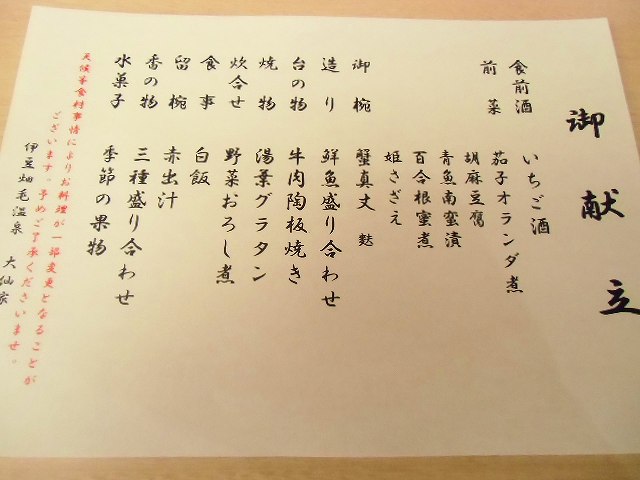 御献立
食前酒 いちご酒
前菜 茄子オランダ煮
胡麻豆腐
青魚南蛮漬
百合根蜜煮
姫さざえ
御椀 蟹真丈 麩
造り 鮮魚盛り合わせ
台の物 牛肉陶板焼き
焼物 湯葉グラタン
炊合せ 野菜おろし煮
食事 白飯
留椀 赤出汁
香の物 三種盛り合わせ
水菓子 季節の果物
天候等食材事情によりお料理が一部変更となることが
ございます。予めご了承くださいませ。
伊豆畑毛温泉 大仙家